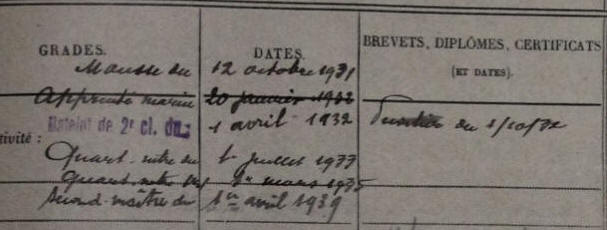 GRADES. DATES. BREVETS, DIPLÔMES, CERTIFICATS
(ET DATES).
Mousse du 12 octobre 1931
Apprenti marin 20 janvier 1932
Matelot de 2e cl. du: 1 avril 1932 du 1/10/32
tivité :
Quart. mtre du 1er juillet 1933
Quart. mtre 1er mars 1935
Second-maître du 1er avril 1939